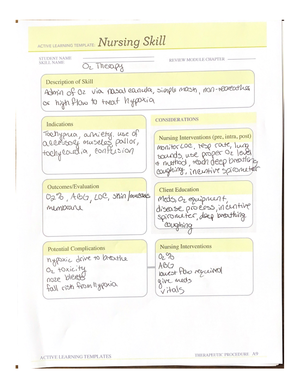 ACTIVE LEARNING TEMPLATE: Nursing Skill
STUDENT NAME
SKILL NAME O2 Therapy REVIEW MODULE CHAPTER
Description of Skill
Admin of O2 via nasal cannula, simple mask, non-rebreather
or high flow to treat hypoxia
Indications
Tachypnea, anxiety, use of
accessory muscles, pallor,
tachycardia, confusion
CONSIDERATIONS
Nursing Interventions (pre, intra, post)
monitor LOC, resp rate, lung
sounds, use proper O2
& method, teach deep breathing
coughing, incentive spirometer
Outcomes/Evaluation
O2%, ABG, LOC, skin/mucous
membrane
Client Education
Meds, O2 equipment,
disease process, incentive
spirometer, deep breathing
coughing
Potential Complications
hypoxic drive to breathe
O2 toxicity
nose bleeds
fall risk from hypoxia
Nursing Interventions
O2%
ABG
lowest flow required
give meds
vitals
ACTIVE LEARNING TEMPLATES THERAPEUTIC PROCEDURE